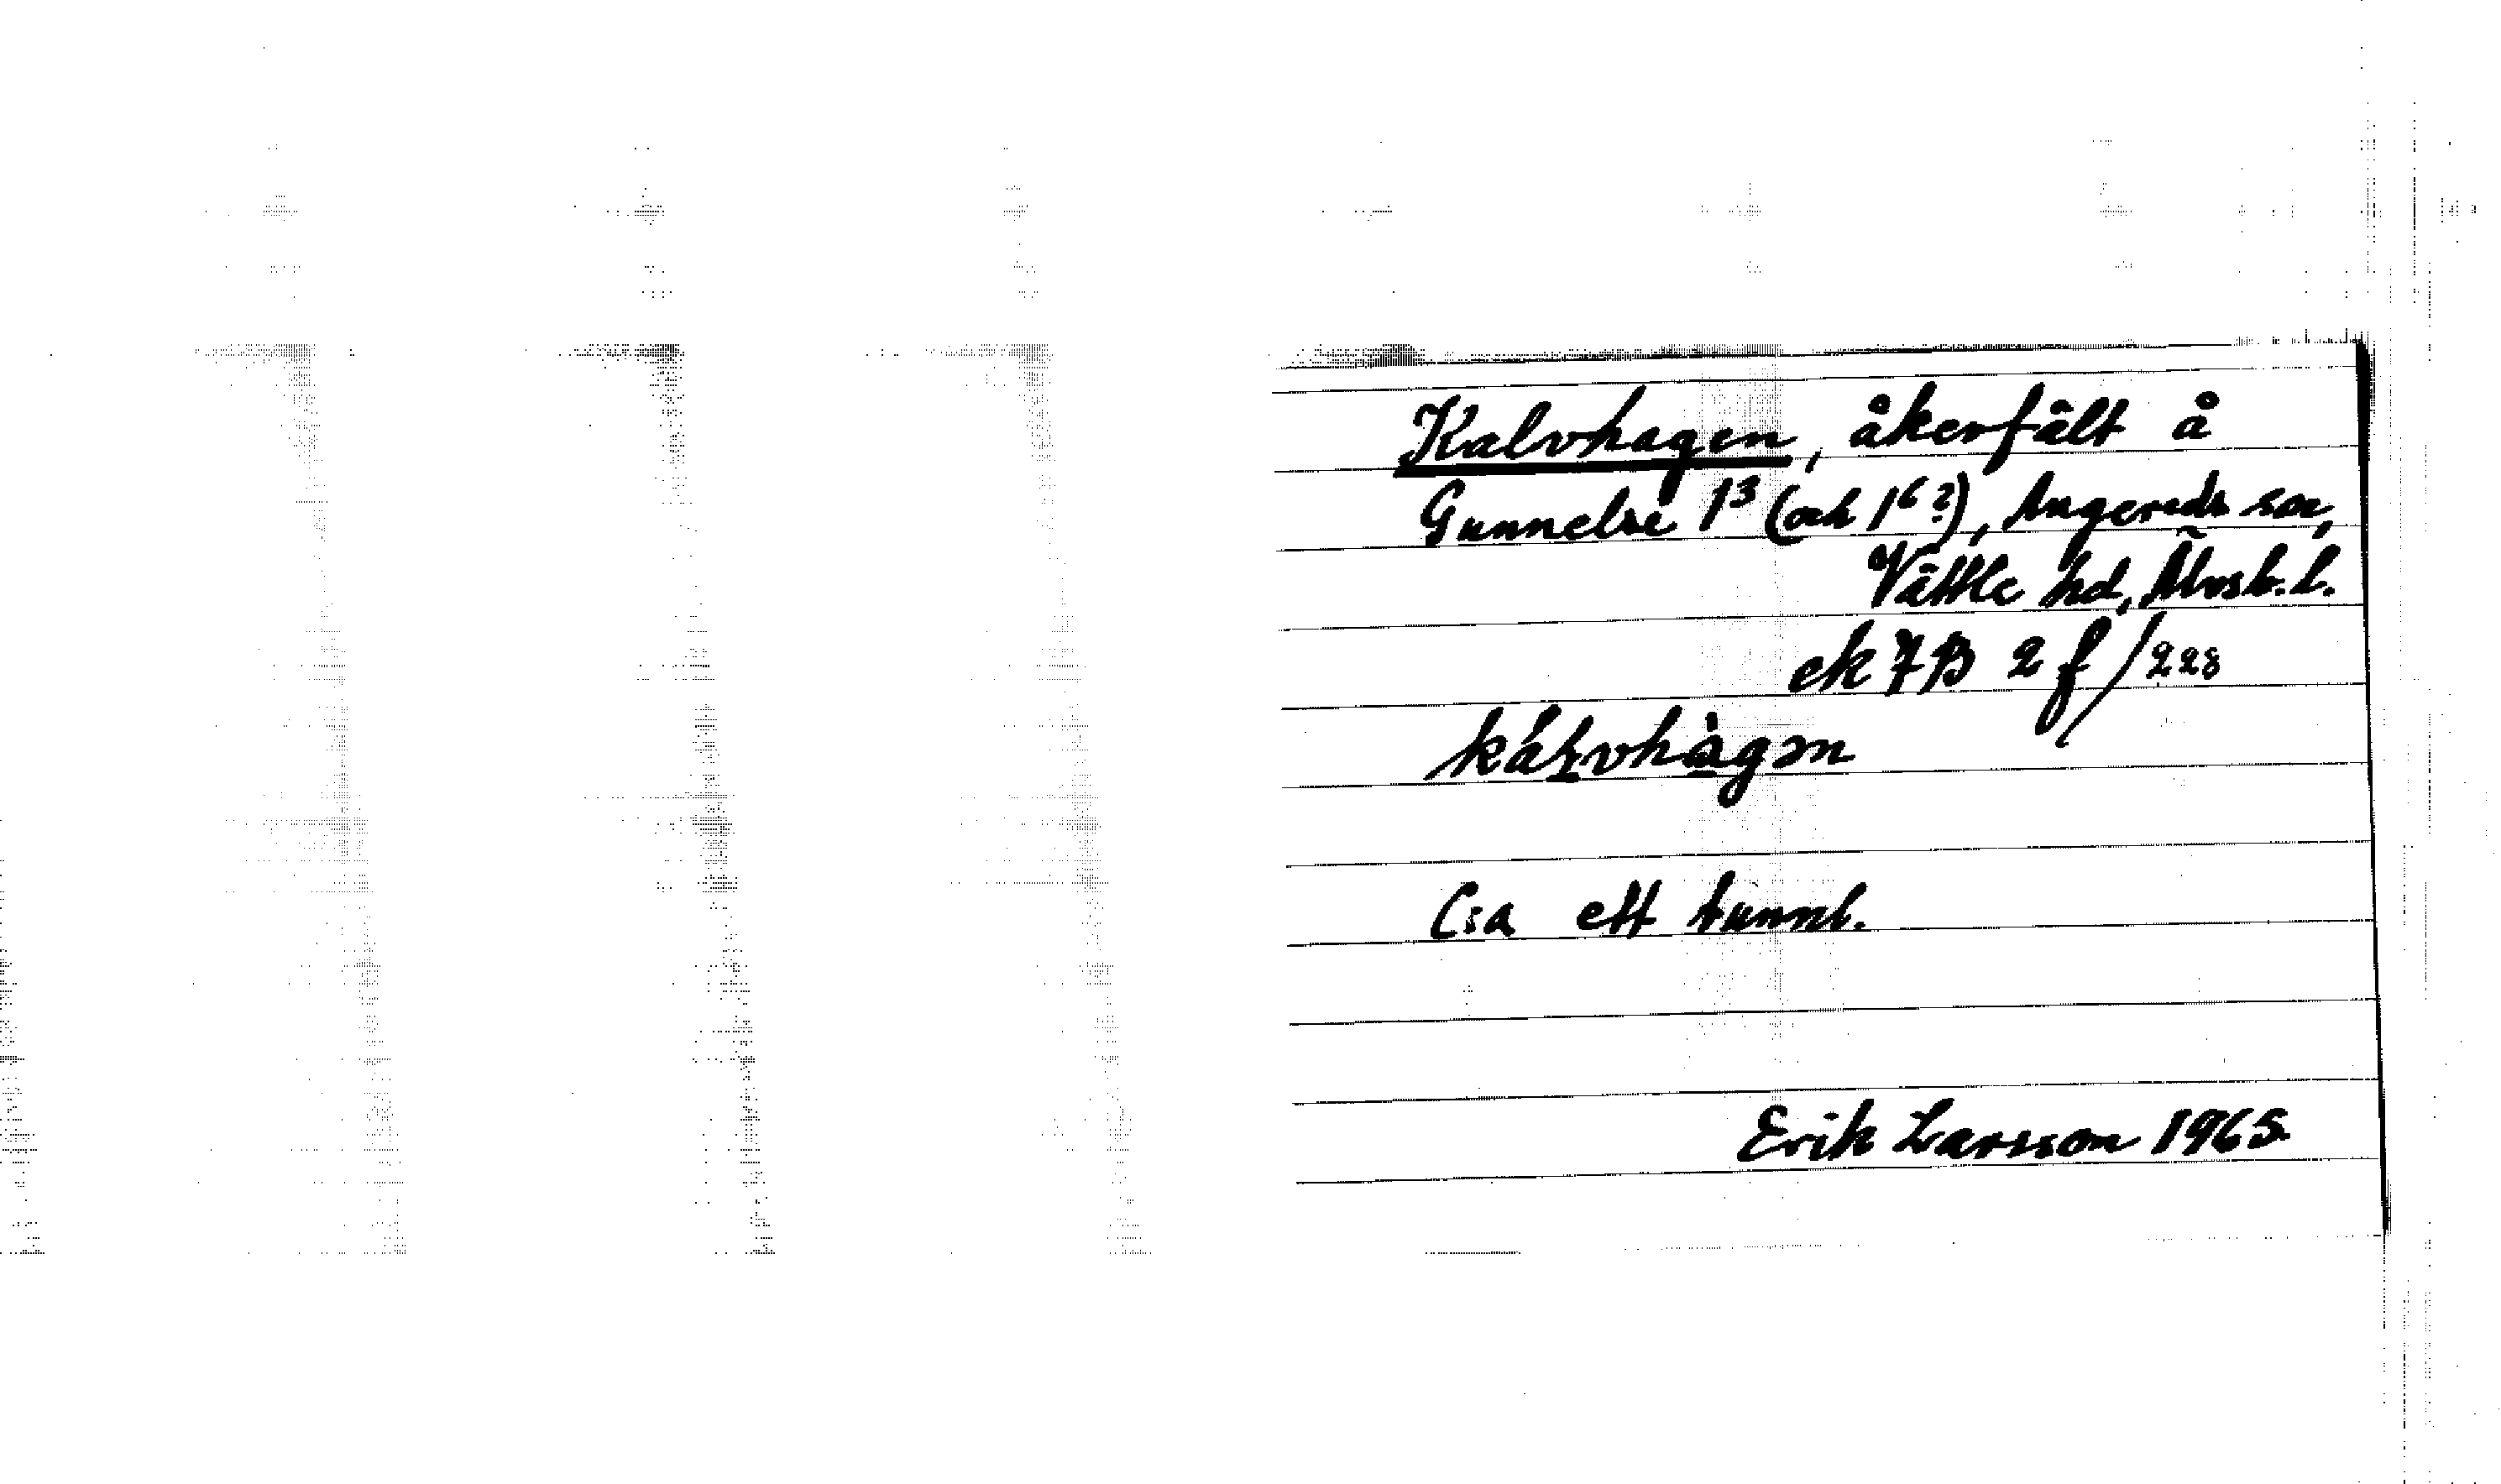 Kalvhagen, åkerfält å
Gunnelse 1³ (och 1⁶?), Angereds sn,
Vättle hd, Älvsb. l.
ek 7B 2 f/228
kálvhàgen
Csa ett tunnl.
Erik Larsson 1965